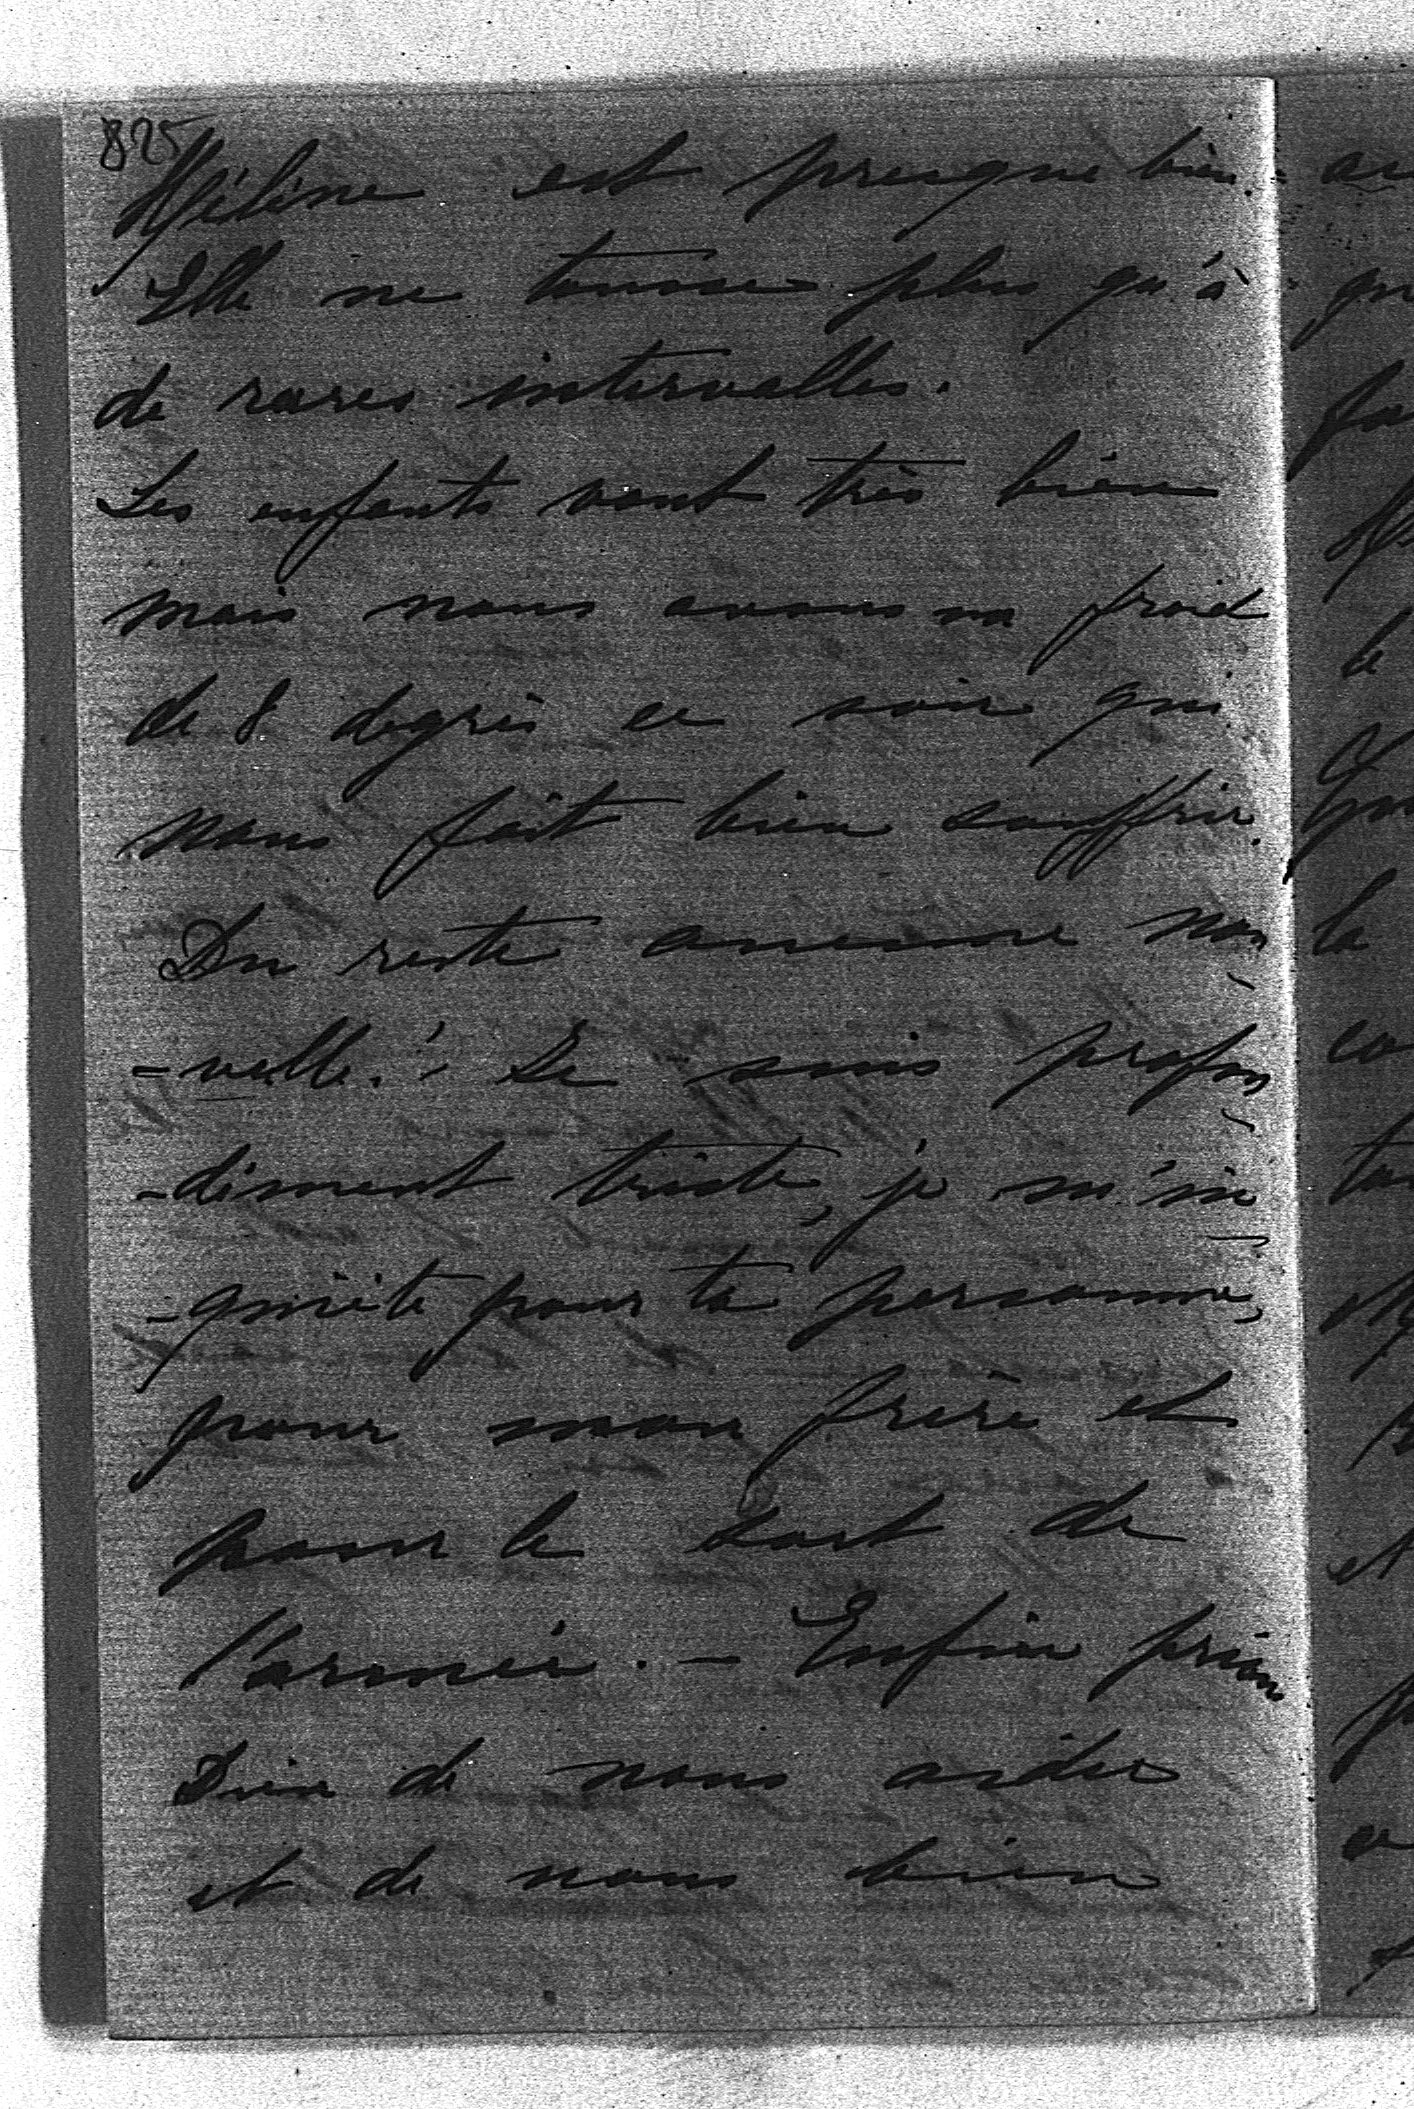 825
Hélène est presque bien.
Elle ne tousse plus qu'à
de rares intervalles.
Les enfants vont très bien
mais nous avons un froid
de 8 degrés ce soir qui
nous fait bien souffrir.
Du reste aucune nou
-velle! Je suis profon
-dément triste, je m'in
-quiète pour ta personne,
pour mon frère et
pour le sort de
l'armée. — Enfin prions
Dieu de nous aider
et de nous bien